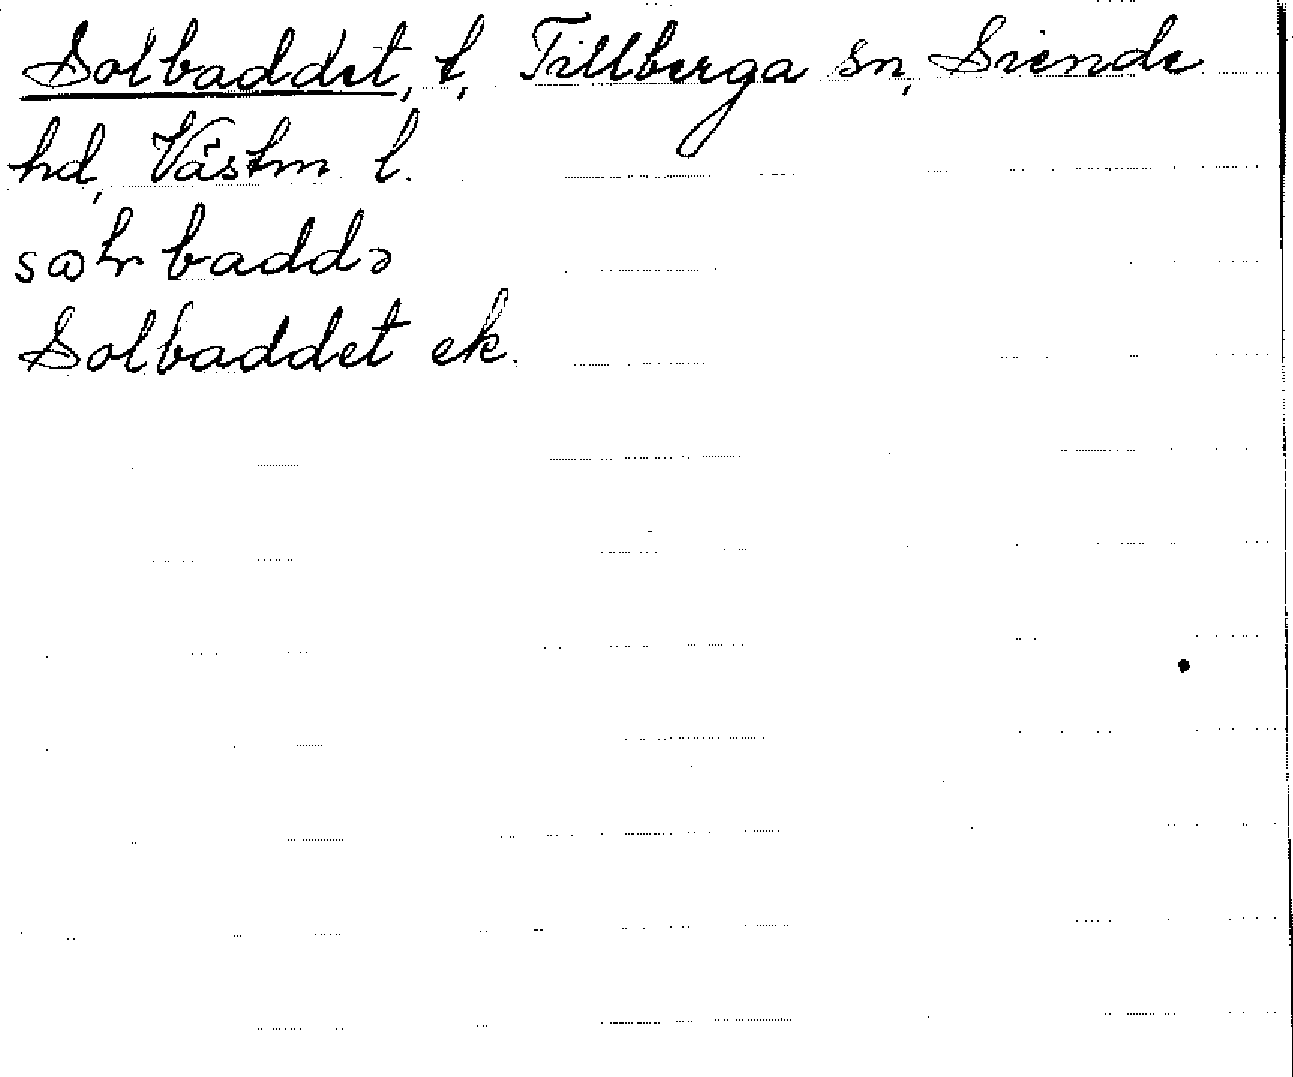 Solbaddet, t, Tillberga sn, Siende
hd, Västm l.
Solbaddet ek.